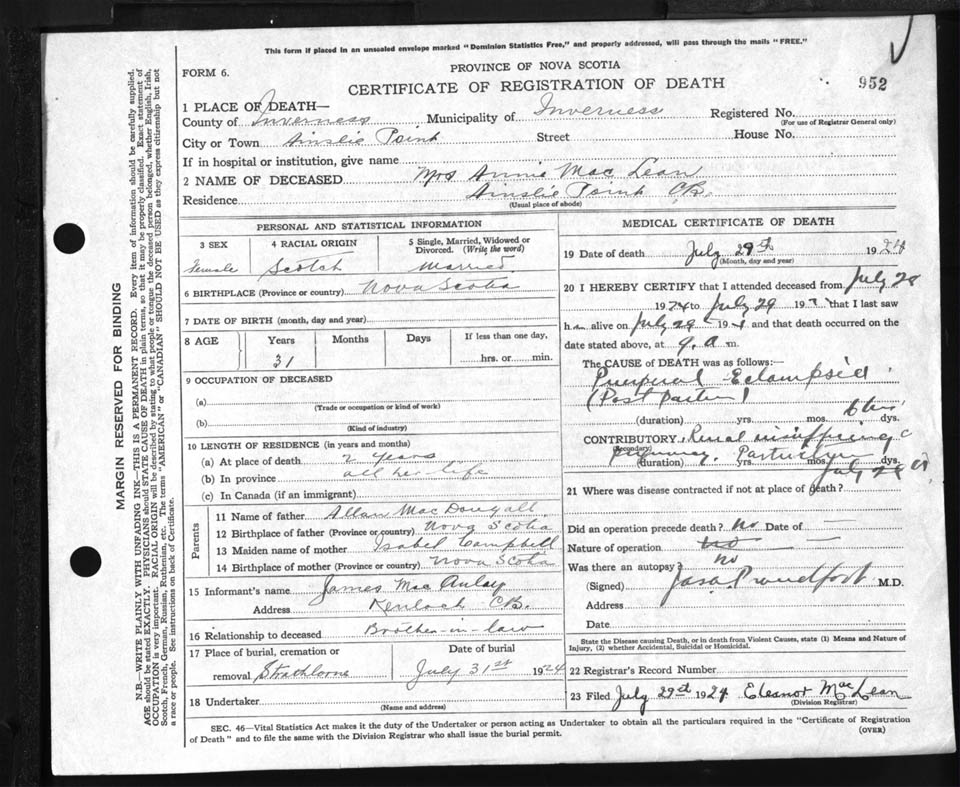 This form if placed in an unsealed envelope marked "Dominion Statistics Free," and properly addressed, will pass through the mails "FREE."
FORM 6.
PROVINCE OF NOVA SCOTIA
CERTIFICATE OF REGISTRATION OF DEATH
952
1 PLACE OF DEATH—
County of Inverness Municipality of Inverness Registered No.
(For use of Registrar General only)
City or Town Ainslie Point Street House No.
If in hospital or institution, give name
2 NAME OF DECEASED Mrs Annie Mac Lean
Residence Ainslie Point C.B.
(Usual place of abode)
PERSONAL AND STATISTICAL INFORMATION
3 SEX 4 RACIAL ORIGIN 5 Single, Married, Widowed or Divorced. (Write the word)
Female Scotch Married
6 BIRTHPLACE (Province or country) Nova Scotia
7 DATE OF BIRTH (month, day and year)
8 AGE Years Months Days If less than one day,
31 hrs. or min.
9 OCCUPATION OF DECEASED
(a)
(Trade or occupation or kind of work)
(b)
(Kind of industry)
10 LENGTH OF RESIDENCE (in years and months)
(a) At place of death 2 years
(b) In province all her life
(c) In Canada (if an immigrant)
Parents
11 Name of father Allan Mac Dougall
12 Birthplace of father (Province or country) Nova Scotia
13 Maiden name of mother Isabel Campbell
14 Birthplace of mother (Province or country) Nova Scotia
15 Informant's name James Mac Aulay
Address Kenloch C.B.
16 Relationship to deceased Brother-in-law
17 Place of burial, cremation or removal Strathlorne
Date of burial
July 31st 1924
18 Undertaker
(Name and address)
MEDICAL CERTIFICATE OF DEATH
19 Date of death July 29th 1924
(Month, day and year)
20 I HEREBY CERTIFY that I attended deceased from July 28
1924 to July 29 192 that I last saw
h alive on July 29 192 and that death occurred on the
date stated above, at 9. a m.
The CAUSE of DEATH was as follows:—
Puerperal Eclampsia
(Post Partum)
(duration) yrs. mos. dys.
CONTRIBUTORY Renal
(Secondary)
(duration) yrs. mos. dys.
July 29
21 Where was disease contracted if not at place of death?
Did an operation precede death? no Date of —
Nature of operation no —
Was there an autopsy? no
(Signed) Proudfoot M.D.
Address
Date
State the Disease causing Death, or in death from Violent Causes, state (1) Means and Nature of
Injury, (2) whether Accidental, Suicidal or Homicidal.
22 Registrar's Record Number
23 Filed July 29th 1924 Eleanor Mac Lean
(Division Registrar)
SEC. 46—Vital Statistics Act makes it the duty of the Undertaker or person acting as Undertaker to obtain all the particulars required in the "Certificate of Registration
of Death" and to file the same with the Division Registrar who shall issue the burial permit.
(OVER)
MARGIN RESERVED FOR BINDING
N.B.—WRITE PLAINLY WITH UNFADING INK—THIS IS A PERMANENT RECORD. Every item of information should be carefully supplied.
AGE should be stated EXACTLY. PHYSICIANS should STATE CAUSE OF DEATH in plain terms, so that it may be properly classified. Exact statement of
OCCUPATION is very important. RACIAL ORIGIN will be described by stating to what people or tongue the deceased person belonged, whether English, Irish,
Scotch, French, German, Russian, Ruthenian, etc. The terms "AMERICAN" or "CANADIAN" SHOULD NOT BE USED as they express citizenship but not
a race or people. See instructions on back of Certificate.